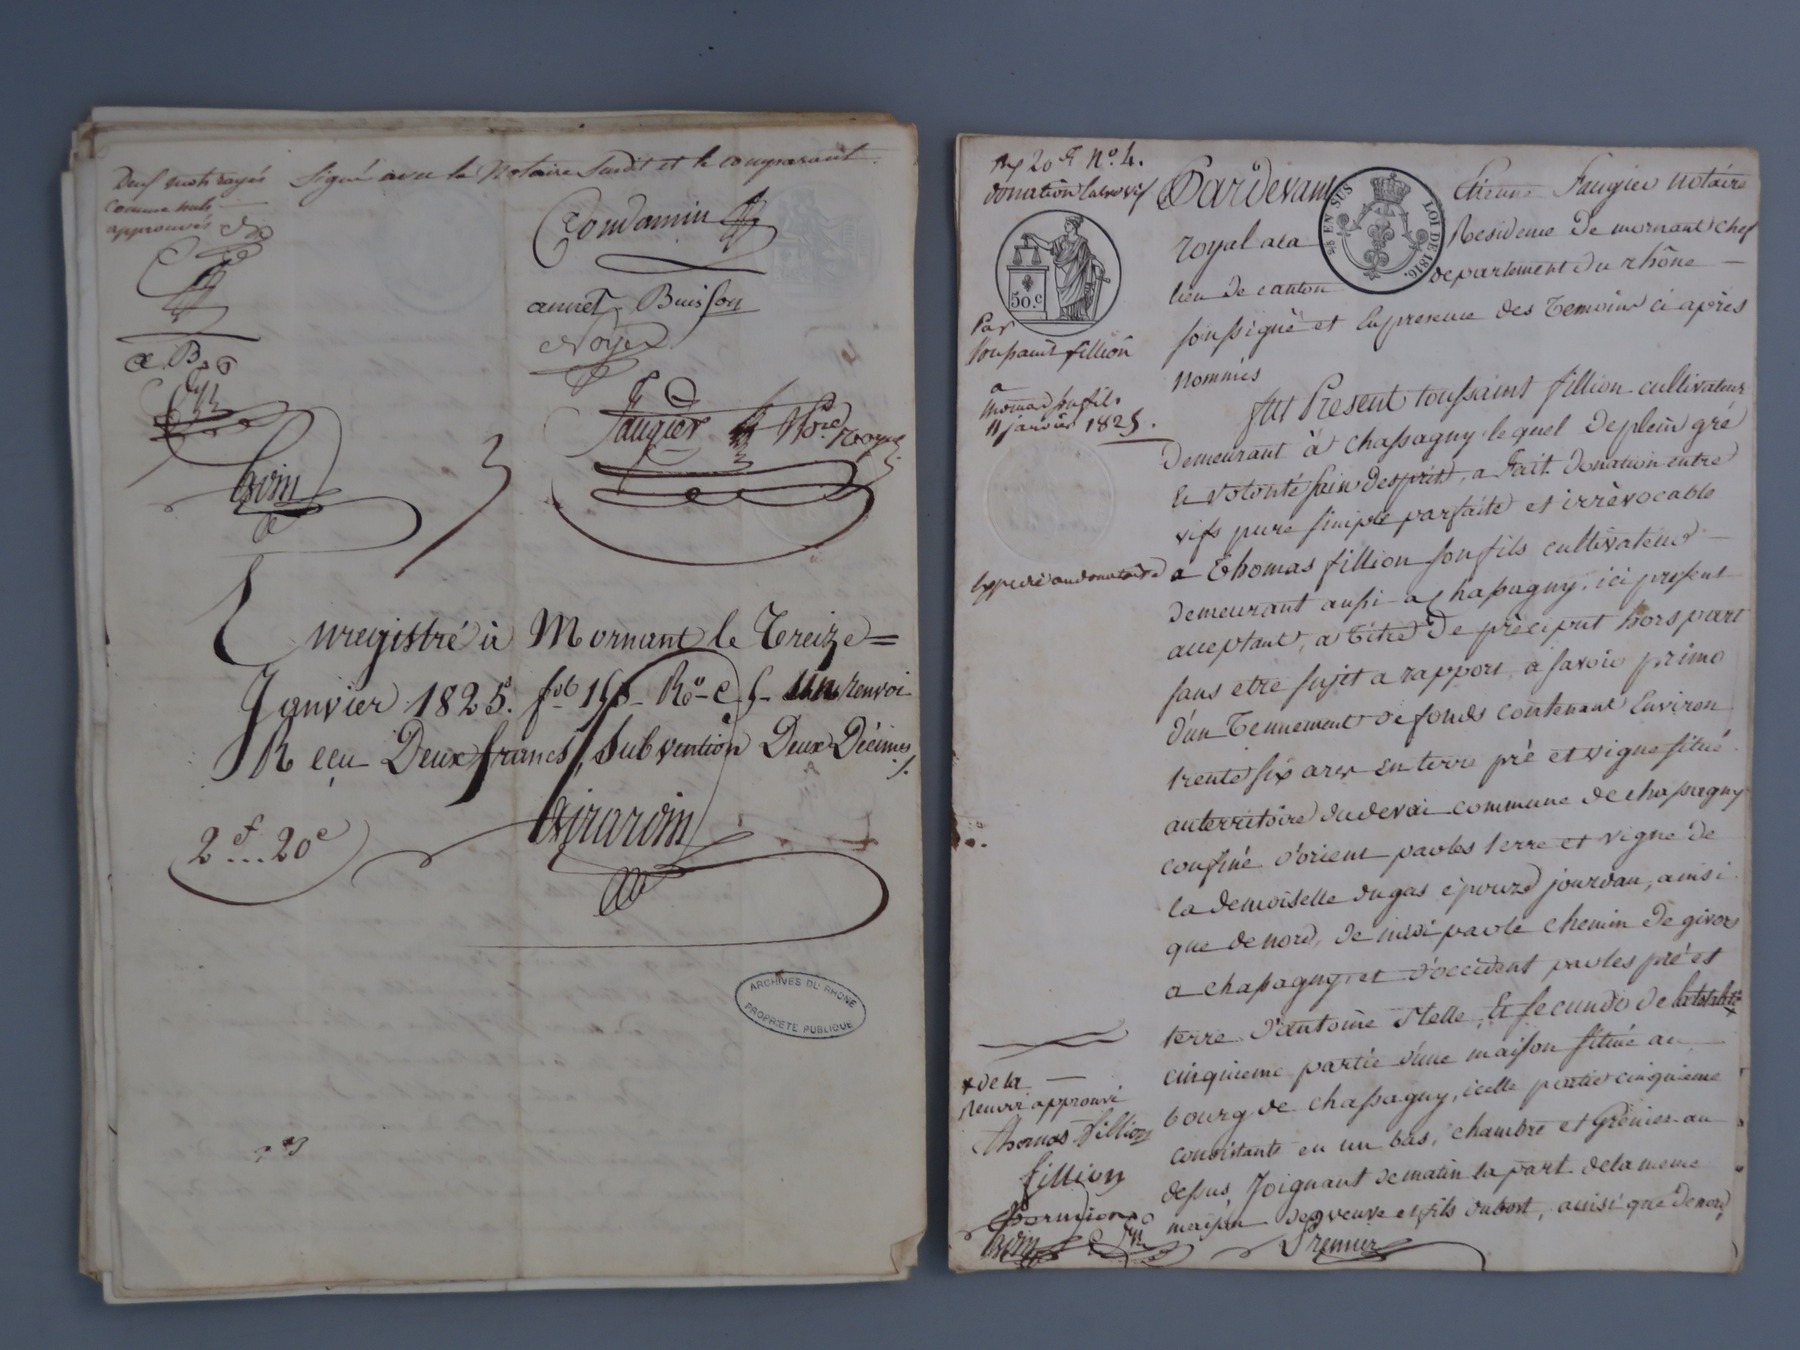 Deux mots rayés
comme nuls
approuvés
Signé avec le Notaire susdit et le comparant.
Condamin
annet Buisson
Noyer
a B
Faugier Nre royal
Enregistré à Mornant le Treize =
Janvier 1825. fol Ro C un renvoi
Reçu Deux francs, Subvention Deux Décimes
Girardin
2 f ... 20 c
ARCHIVES DU RHONE
PROPRIETE PUBLIQUE
No. 4.
donation entrevifs
50.c
25 EN SUS
LOI DE 1816.
Par
toussaint fillion
a
thomas son fils
11 janvier 1825.
Expedié au donataire
Pardevant Etienne Faugier notaire
royal a la Residence de mornant chef
lieu de canton departement du rhône —
soussigné et en presence des temoins ci après
nommés
fut Present toussaint fillion cultivateur
demeurant à chassagny lequel de plein gré
et volonté sain d'esprit, a fait donation entre
vifs pure simple parfaite et irrévocable
a thomas fillion son fils cultivateur —
demeurant aussi a chassagny, ici present
acceptant, a titre de préciput hors part
sans etre sujet a rapport, a savoir primo
d'un tennement de fonds contenant environ
trente six ares en terre pré et vigne situé
au territoire du devai commune de chassagny
confiné d'orient par les terre et vigne de
la demoiselle dugas épouze jourdan, ainsi
que de nord, de midi par le chemin de givors
a chassagny et d'occident par les pré et
terre d'antoine Stelle, Et secundo de
cinquieme partie d'une maison située au
bourg de chassagny, icelle partie cinquieme
consistante en un bas, chambre et Grenier au
dessus, Joignant de matin la part de la meme
maison des veuve et fils dubost, ainsi que de nord,
x de la —
Renvoi approuvé
thomas fillion
fillion
Premier